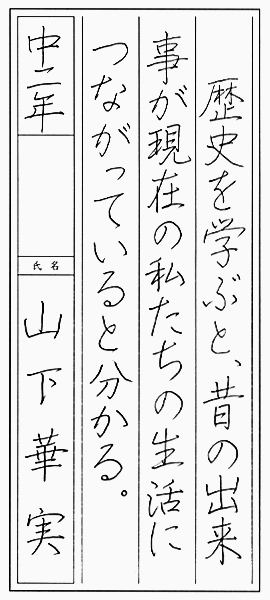 歴史を学ぶと、昔の出来
事が現在の私たちの生活に
つながっていると分かる。
中二年
氏名
山下華実